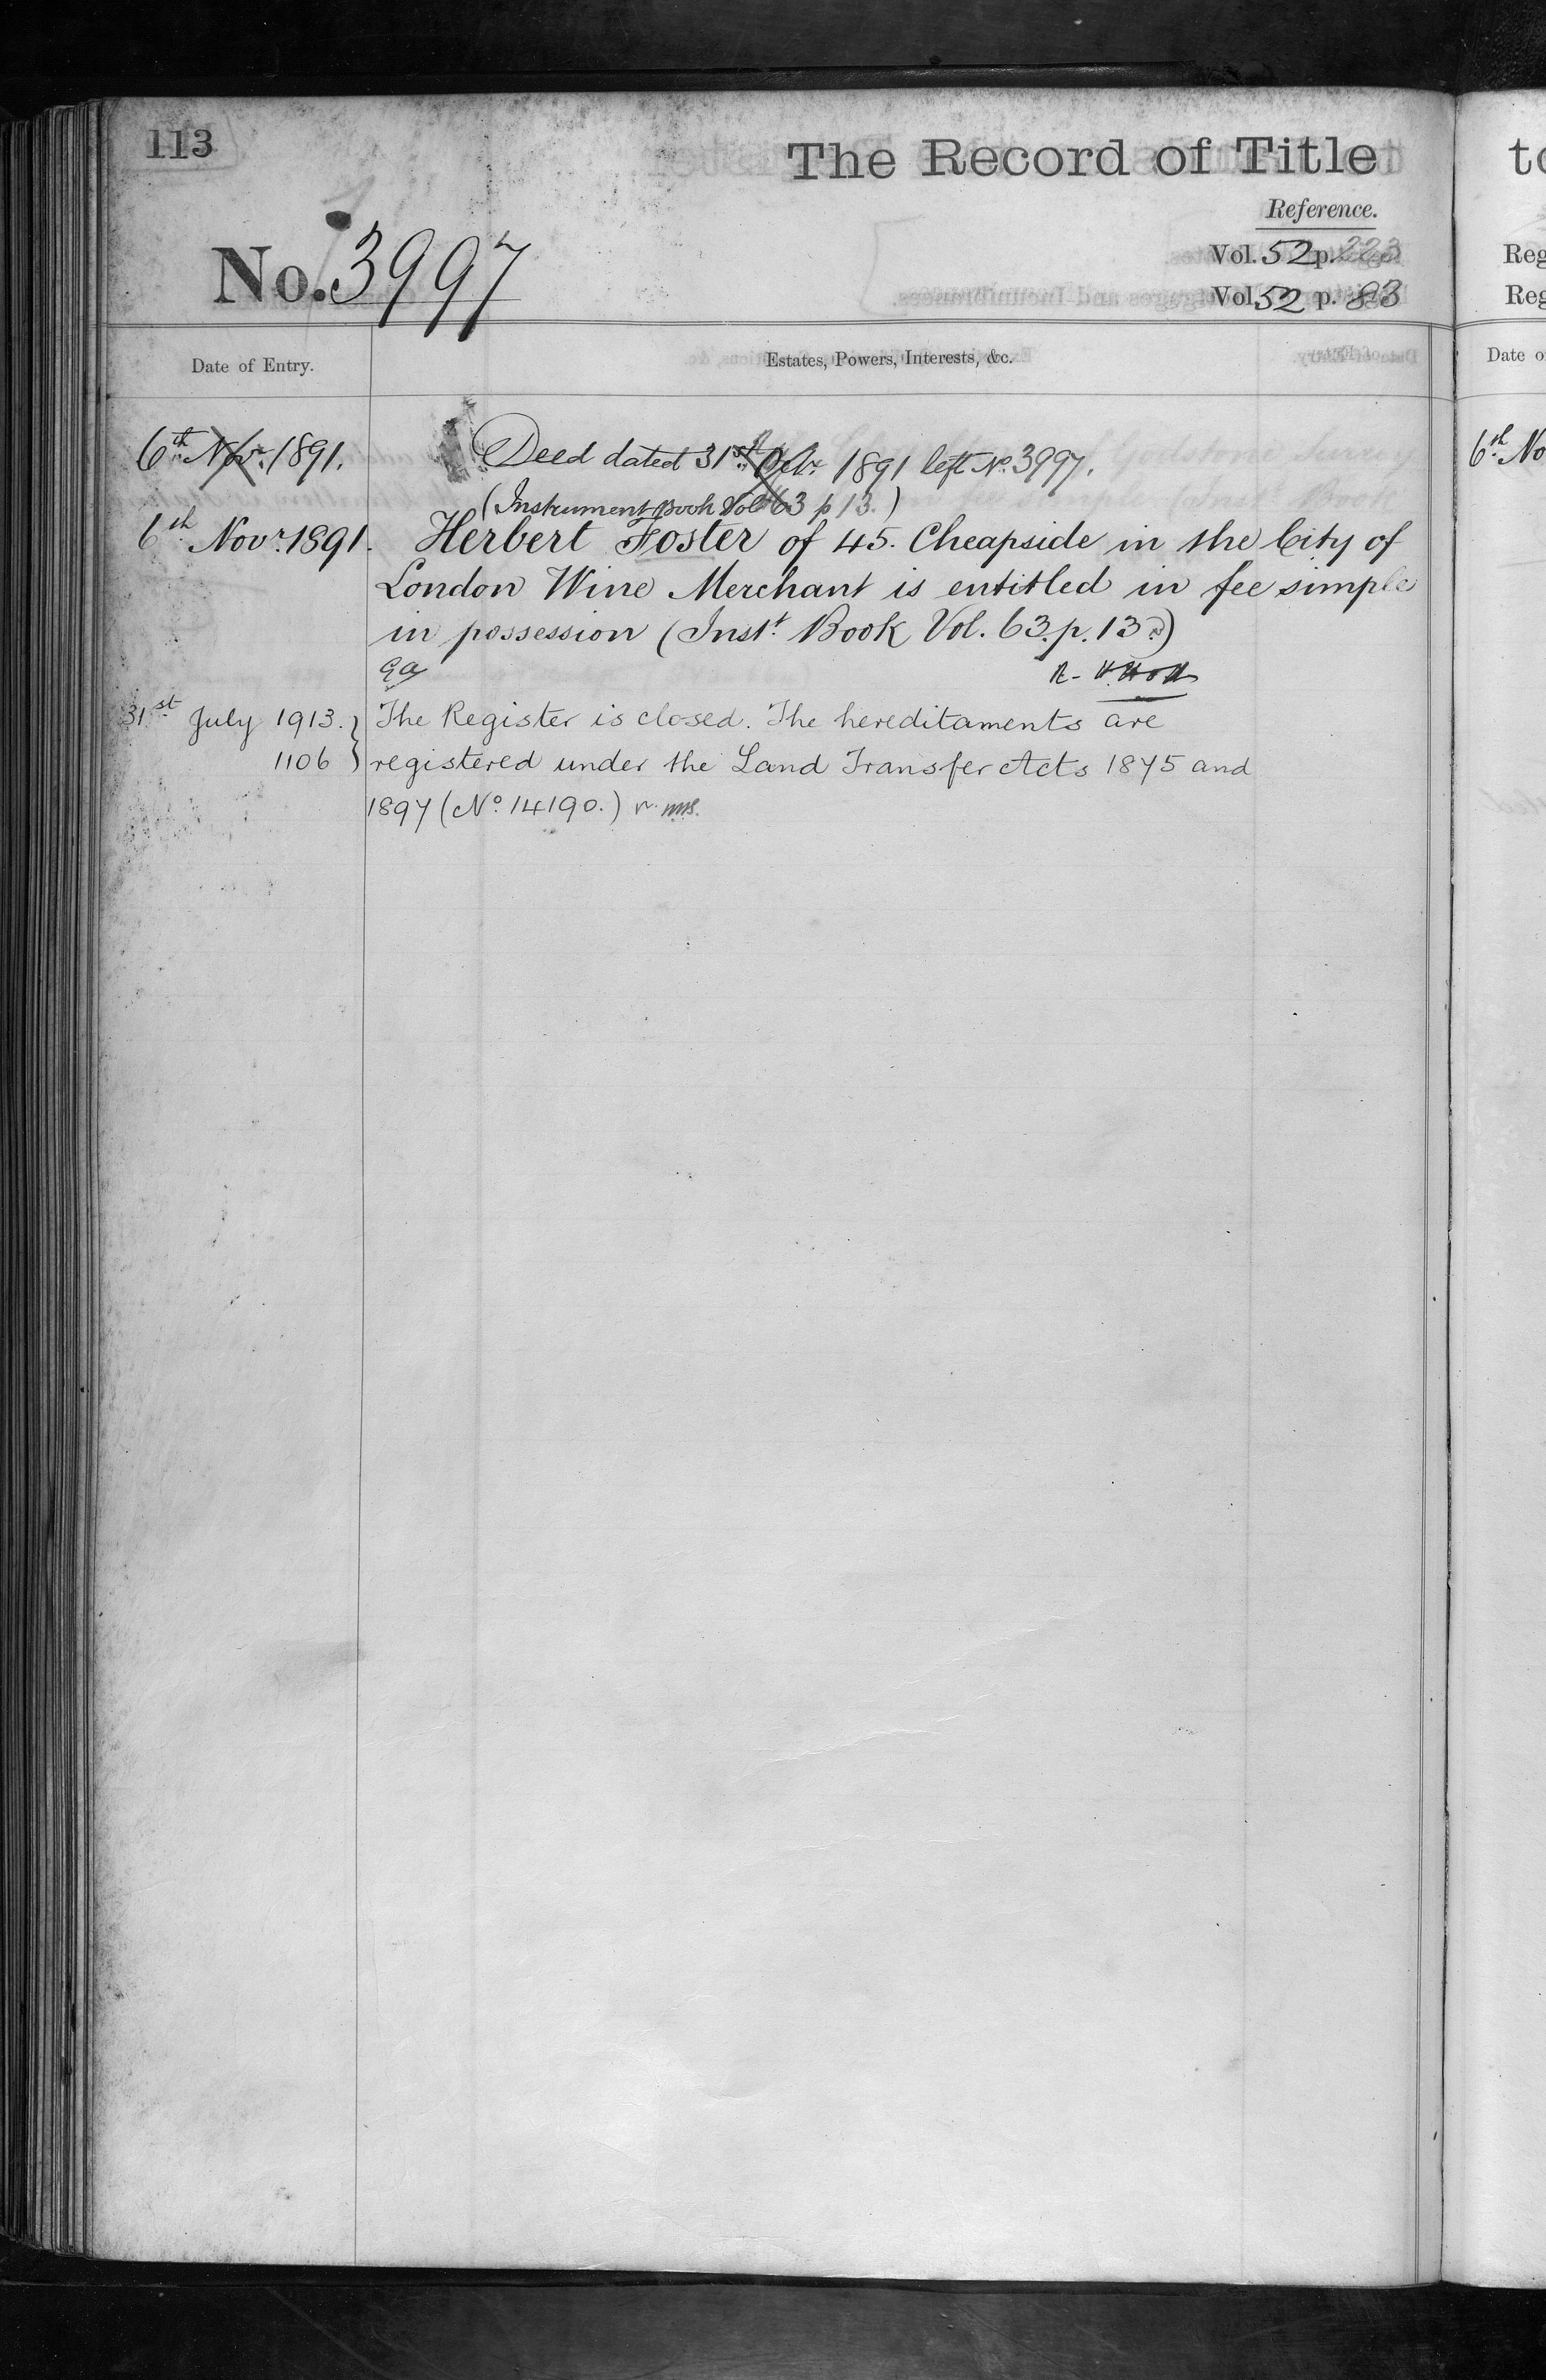 113
The Record of Title
Reference.
No. 3997
Vol. 52 p. 223
Vol. 52 p. 83
Date of Entry.
Estates, Powers, Interests, &c.
6th Novr. 1891.
Deed dated 31st Octr. 1891 left No. 3997.
(Instrument Book Vol 63 p 13.)
6th Novr. 1891.
Herbert Foster of 45. Cheapside in the City of
London Wine Merchant is entitled in fee simple
in possession (Inst. Book Vol. 63. p. 13.)
31st July 1913. }
The Register is closed. The hereditaments are
1106 }
registered under the Land Transfer Acts 1875 and
1897 (No. 14190.)
to
Reg
Reg
Date o
6th No